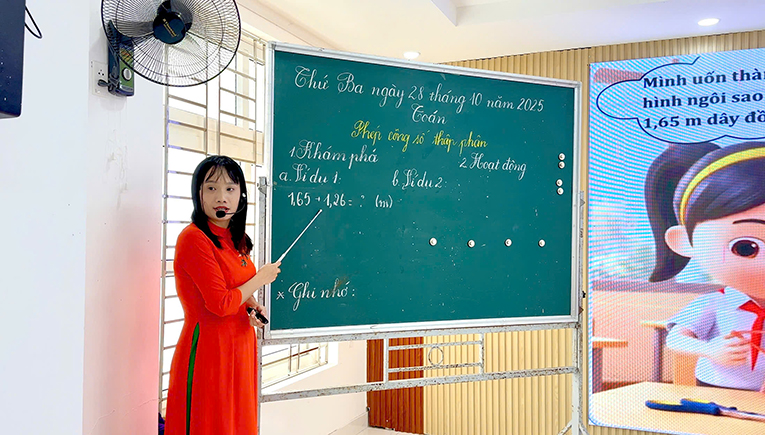 Thứ Ba ngày 28 tháng 10 năm 2025
Toán
Phép cộng số thập phân
1. Khám phá
2. Hoạt động
a. Ví dụ 1:
b. Ví dụ 2:
1,65 + 1,26 = ? (m)
* Ghi nhớ:
Mình uốn thàn
hình ngôi sao
1,65 m dây đồ